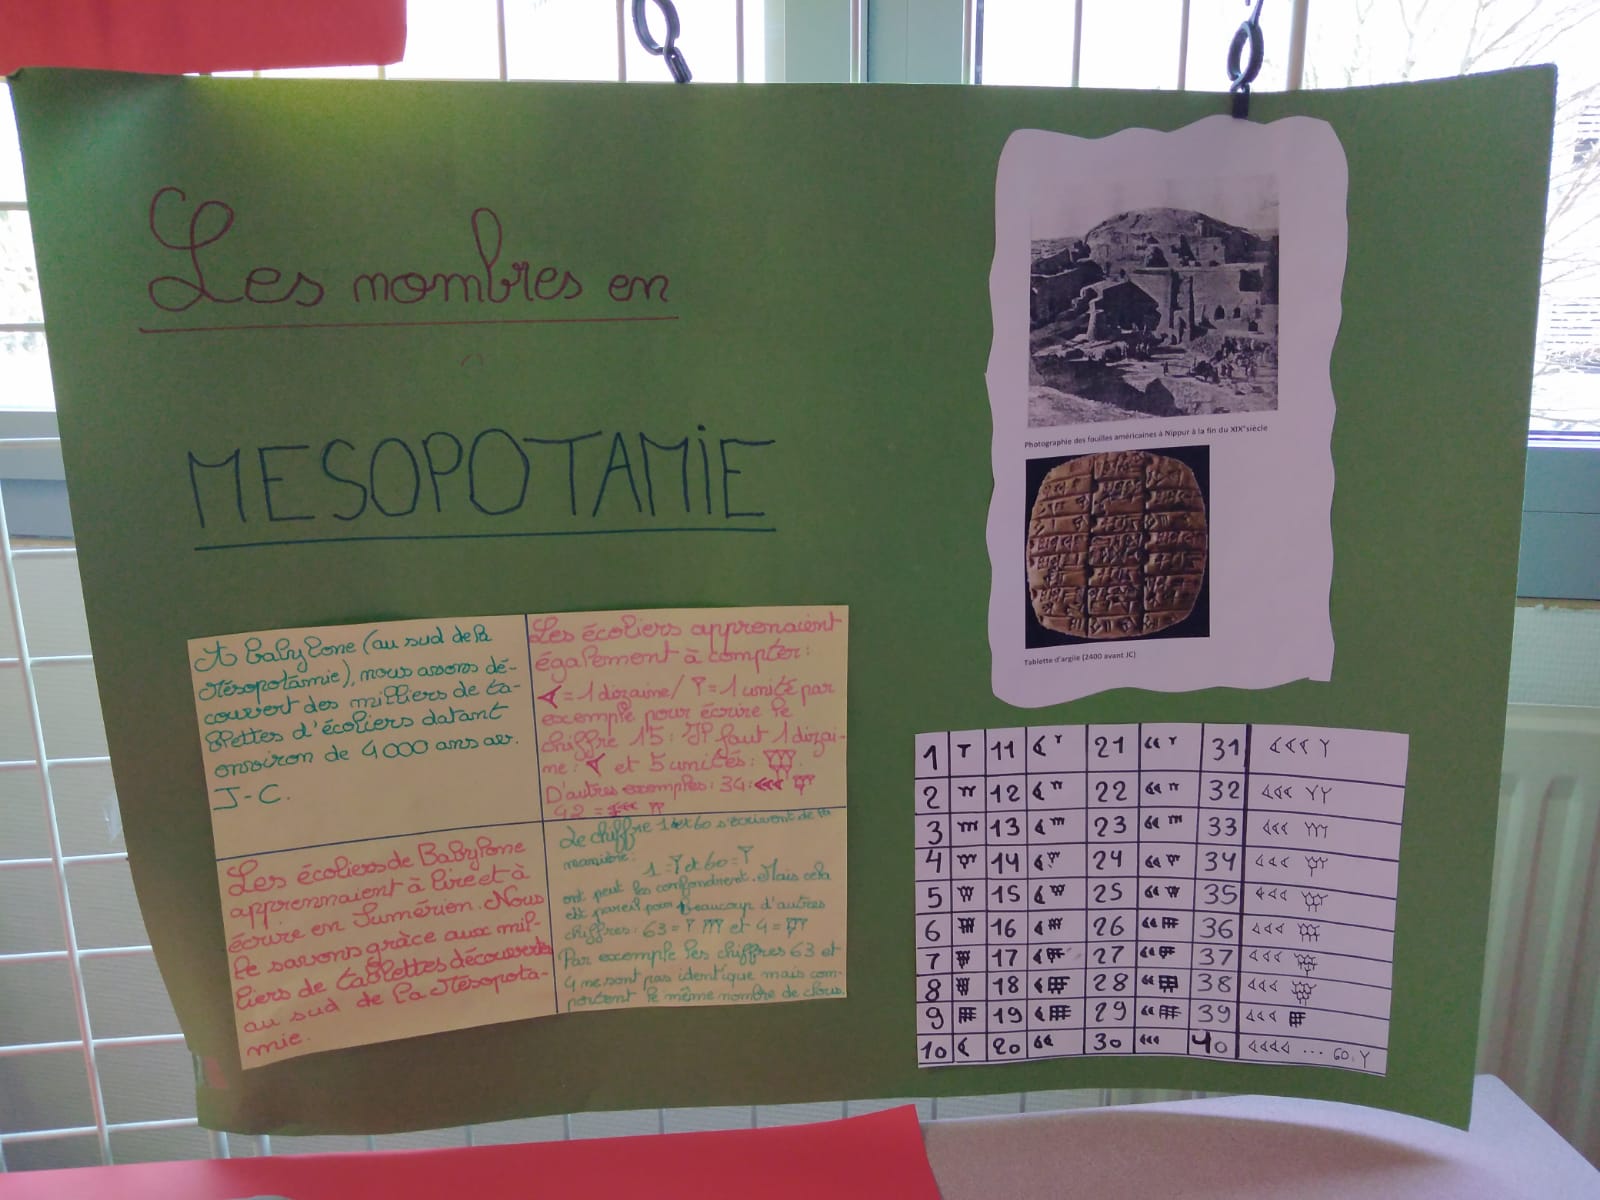 Les nombres en
MESOPOTAMIE
A Babylone (au sud de la
Mésopotamie), nous avons dé-
couvert des milliers de ta-
blettes d'écoliers datant
environ de 4000 ans av.
J-C.
Les écoliers apprenaient
également à compter:
𒌋 = 1 dizaine / 𒁹 = 1 unité par
exemple pour écrire le
chiffre 15: Il faut 1 dizai-
ne: 𒌋 et 5 unités: 𒐊.
D'autres exemples: 34: 𒌍 𒐉
42 = 𒐏 𒈫
Les écoliers de Babylone
apprennaient à lire et à
écrire en Sumérien. Nous
le savons grâce aux mil-
liers de tablettes découvertes
au sud de la Mésopota-
mie.
Le chiffre 1 et 60 s'écrivent de la
manière:
1 = 𒁹 et 60 = 𒁹
ont peut les confondrent. Mais cela
est pareil pour beaucoup d'autres
chiffres: 63 = 𒁹 𒐈 et 4 = 𒐉
Par exemple les chiffres 63 et
4 ne sont pas identique mais com-
portent le même nombre de clous.
Photographie des fouilles américaines à Nippur à la fin du XIX°siècle
Tablette d'argile (2400 avant JC)
1 𒁹 11 𒌋 𒁹 21 𒌋𒌋 𒁹 31 𒌋𒌋𒌋 𒁹
2 𒈫 12 𒌋 𒈫 22 𒌋𒌋 𒈫 32 𒌋𒌋𒌋 𒈫
3 𒐈 13 𒌋 𒐈 23 𒌋𒌋 𒐈 33 𒌋𒌋𒌋 𒐈
4 𒐉 14 𒌋 𒐉 24 𒌋𒌋 𒐉 34 𒌋𒌋𒌋 𒐉
5 𒐊 15 𒌋 𒐊 25 𒌋𒌋 𒐊 35 𒌋𒌋𒌋 𒐊
6 𒐋 16 𒌋 𒐋 26 𒌋𒌋 𒐋 36 𒌋𒌋𒌋 𒐋
7 𒐌 17 𒌋 𒐌 27 𒌋𒌋 𒐌 37 𒌋𒌋𒌋 𒐌
8 𒐍 18 𒌋 𒐍 28 𒌋𒌋 𒐍 38 𒌋𒌋𒌋 𒐍
9 𒐎 19 𒌋 𒐎 29 𒌋𒌋 𒐎 39 𒌋𒌋𒌋 𒐎
10 𒌋 20 𒌋𒌋 30 𒌋𒌋𒌋 40 𒌋𒌋𒌋𒌋 ... 60. 𒁹